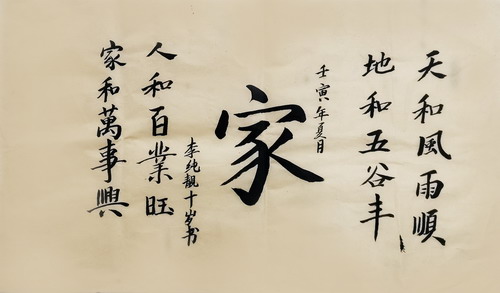 天和風雨順
地和五谷丰
壬寅年夏月
家
李纯靓十岁书
人和百業旺
家和萬事興